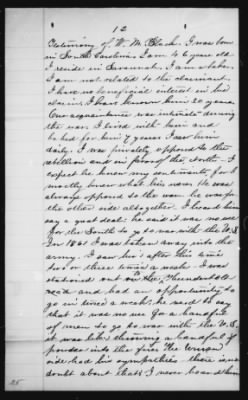 12
Testimony of W. M. Black. I was born
in South Carolina. I am 46 years old
I reside in Savannah. I am a baker.
I am not related to the claimant.
I have no beneficial interest in his
claim. I have known him 20 years.
Our acquaintance was intimate during
the war. I lived with him and
he fed for him 7 years I saw him
daily. I was privately opposed to the
rebellion and in favor of the North. I
expect he knew my sentiments, for I
mostly knew what his were. He was
always opposed to the war he was for
the other side altogether. I heard him
say a great deal: he said it was no use
for the South to go to war with the U.S
In 1861 I was taken away into the
army. I saw him after this once
two or three times a week. I was
stationed out on the Thunderbolt
road and had an opportunity to
go in twice a week: he said to say
that it was no use for a handful
of men to go to war with the U.S.
it was like throwing a handful of
powder into the fire. The Union
side had his sympathies there is no
doubt about that. I never heard him
25